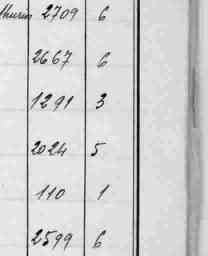 2709 6
2667 6
1291 3
2024 5
110 1
2599 6